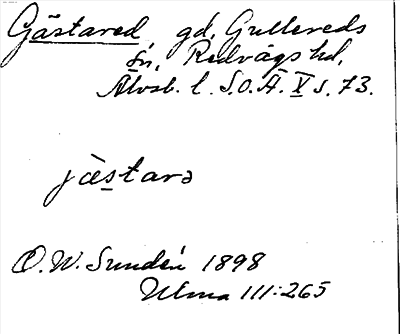 Gästared gd, Gullereds
sn, Redvägs hd,
Älvsb. l. S.O.Ä. X s. 73.
jästarə
O.W. Sundén 1898
Ulma 111:265